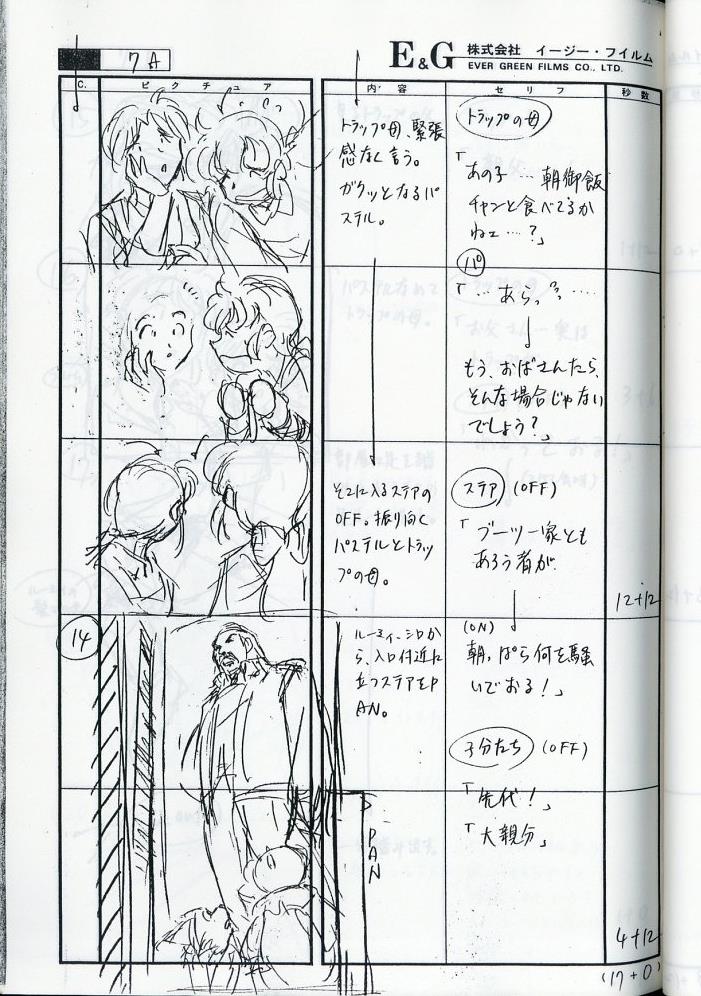 7A
E&G 株式会社 イージー・フイルム
EVER GREEN FILMS CO., LTD.
C. ピクチュア 内容 セリフ 秒数
トラップ母、緊張
感なく言う。
ガクッとなるパ
ステル。
トラップの母
「あの子… 朝御飯
チャンと食べてるか
ねェ…?」
パ
「…あらっ……
もう、おばさんたら、
そんな場合じゃない
でしょう?」
そこに入るステアの
OFF。振り向く
パステルとトラッ
プの母。
ステア (OFF)
「ブーツ一家とも
あろう者が
12+12
14
ルーミィ、シロか
ら、入口付近に
立つステアをP
AN。
(ON)
朝っぱら何を騒
いでおる!」
子分たち (OFF)
「先代!」
「大親分」
PAN
4+12
(17+0)